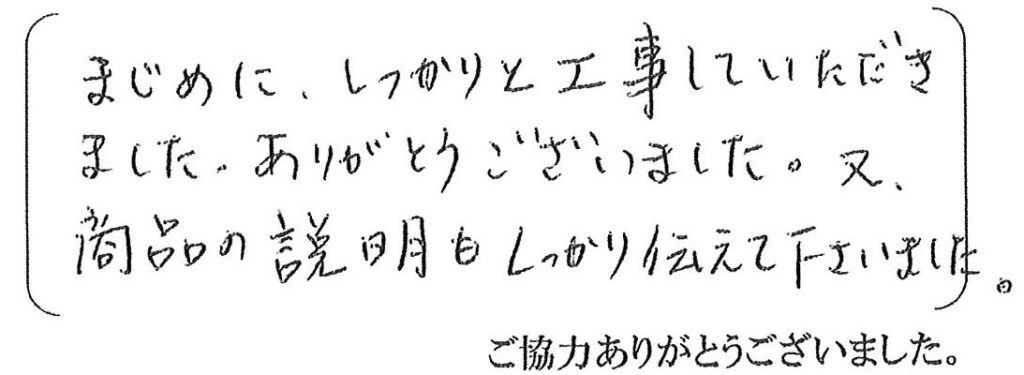 まじめに、しっかりと工事していただき
ました。ありがとうございました。又、
商品の説明もしっかり伝えて下さいました。
ご協力ありがとうございました。